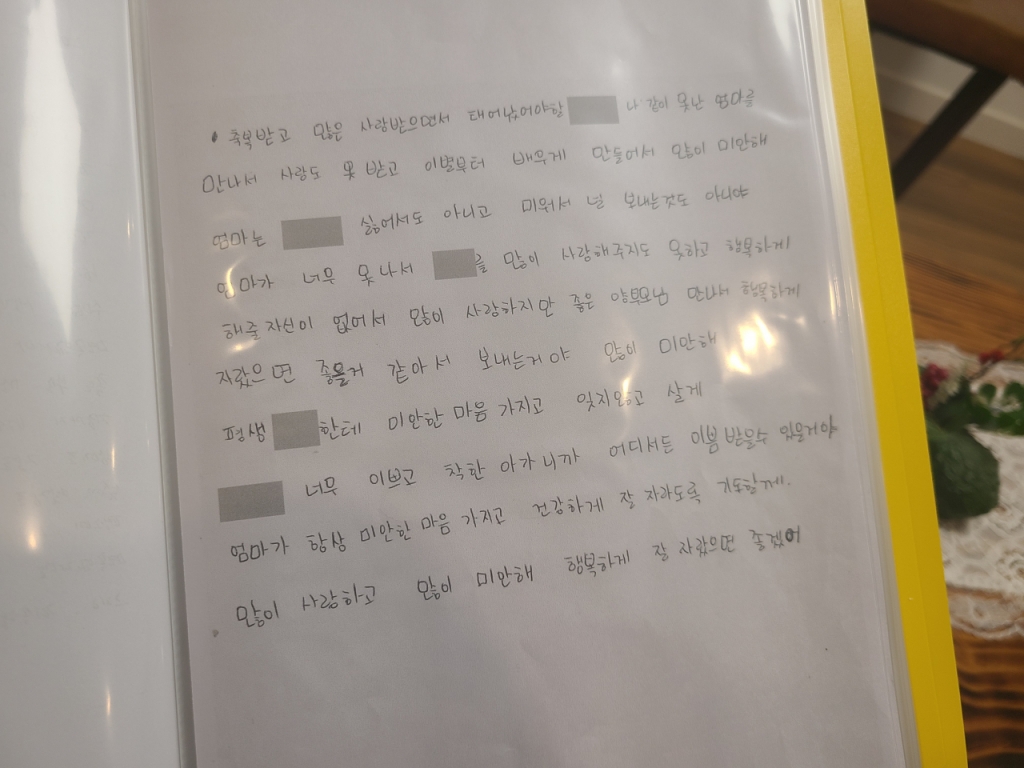 축복받고 많은 사랑받으면서 태어났어야할 나 같이 못난 엄마를
만나서 사랑도 못 받고 이별부터 배우게 만들어서 많이 미안해
엄마는 싫어서도 아니고 미워서 널 보내는것도 아니야
엄마가 너무 못나서 를 많이 사랑해주지도 못하고 행복하게
해줄 자신이 없어서 많이 사랑하지만 좋은 양부모님 만나서 행복하게
자랐으면 좋을거 같아서 보내는거야 많이 미안해
평생 한테 미안한 마음 가지고 잊지않고 살게
너무 이쁘고 착한 아가니까 어디서든 이쁨 받을수 있을거야
엄마가 항상 미안한 마음 가지고 건강하게 잘 자라도록 기도할게.
많이 사랑하고 많이 미안해 행복하게 잘 자랐으면 좋겠어